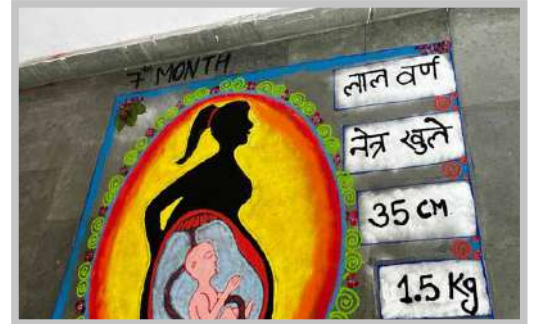 7th MONTH
लाल वर्ण
नेत्र खुले
35 CM
1.5 Kg